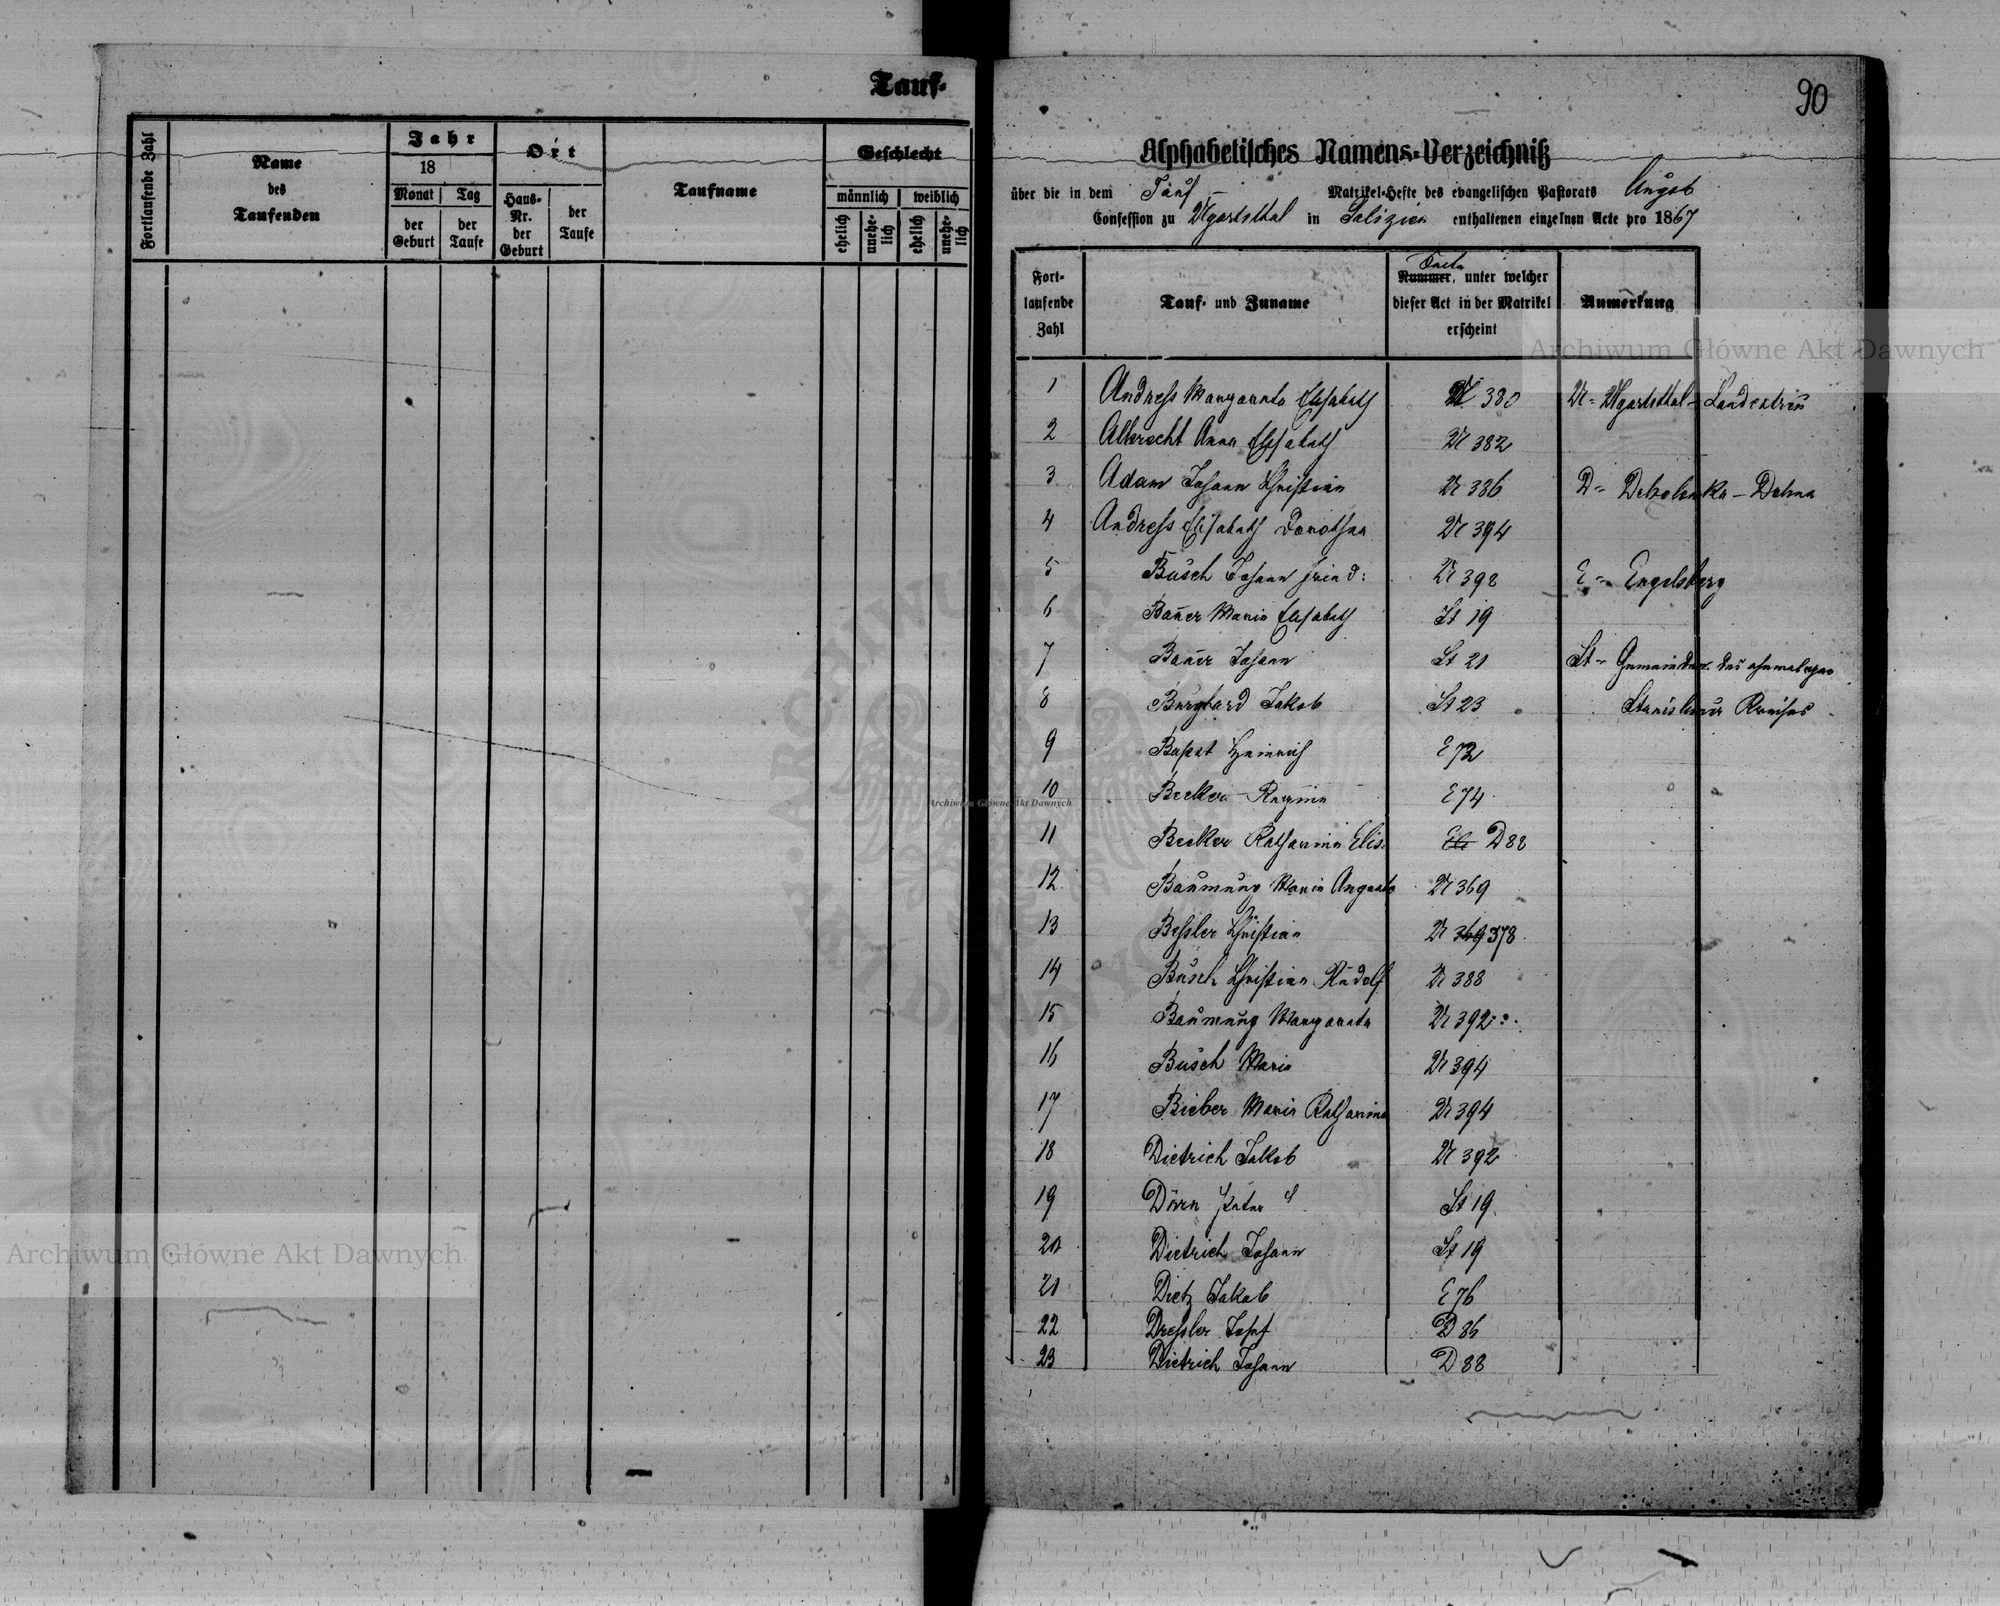 Tauf-
Fortlaufende Zahl
Name
des
Taufenden
Jahr
18
Monat
Tag
der
Geburt
der
Taufe
Ort
Haus-
Nr.
der
Geburt
der
Taufe
Taufname
Geschlecht
männlich
weiblich
ehelich
unehe-
lich
ehelich
unehe-
lich
90
Alphabetisches Namens-Verzeichniß
über die in dem Tauf- Matrikel-Hefte des evangelischen Pastorats Augsb
Confession zu Ugartsthal in Galizien enthaltenen einzelnen Acte pro 1867
Fort-
laufende
Zahl
Tauf- und Zuname
Nummer, unter welcher
dieser Act in der Matrikel
erscheint
Anmerkung
1 Andreß Margareta Elisabeth U 380 U = Ugartsthal - Landestreu
2 Albrecht Anna Elisabeth U 382
3 Adam Johann Christian U 386 D = Debolowka - Dolina
4 Andreß Elisabeth Dorothea U 394
5 Busch Johann Fried: U 398 E = Engelsberg
6 Bauer Maria Elisabeth St 19
7 Bauer Johann St 21 St = Gemeinden des ehemaligen
8 Burghard Jakob St 23 Stanislauer Kreises
9 Bapst Heinrich E 72
10 Becker Regina E 74
11 Becker Katharina Elis. D 88
12 Baumung Maria U 369
13 Beßler Christian U 369 378
14 Busch Christian Rudolf U 388
15 Baumung Margareta U 392
16 Busch Maria U 394
17 Bieber Maria Katharina U 394
18 Dietrich Jakob U 392
19 Dörn Peter St 19
20 Dietrich Johann St 19
21 Dietz Jakob E 76
22 Dreßler Josef D 86
23 Dietrich Johann D 88
Archiwum Główne Akt Dawnych
Archiwum Główne Akt Dawnych
Archiwum Główne Akt Dawnych